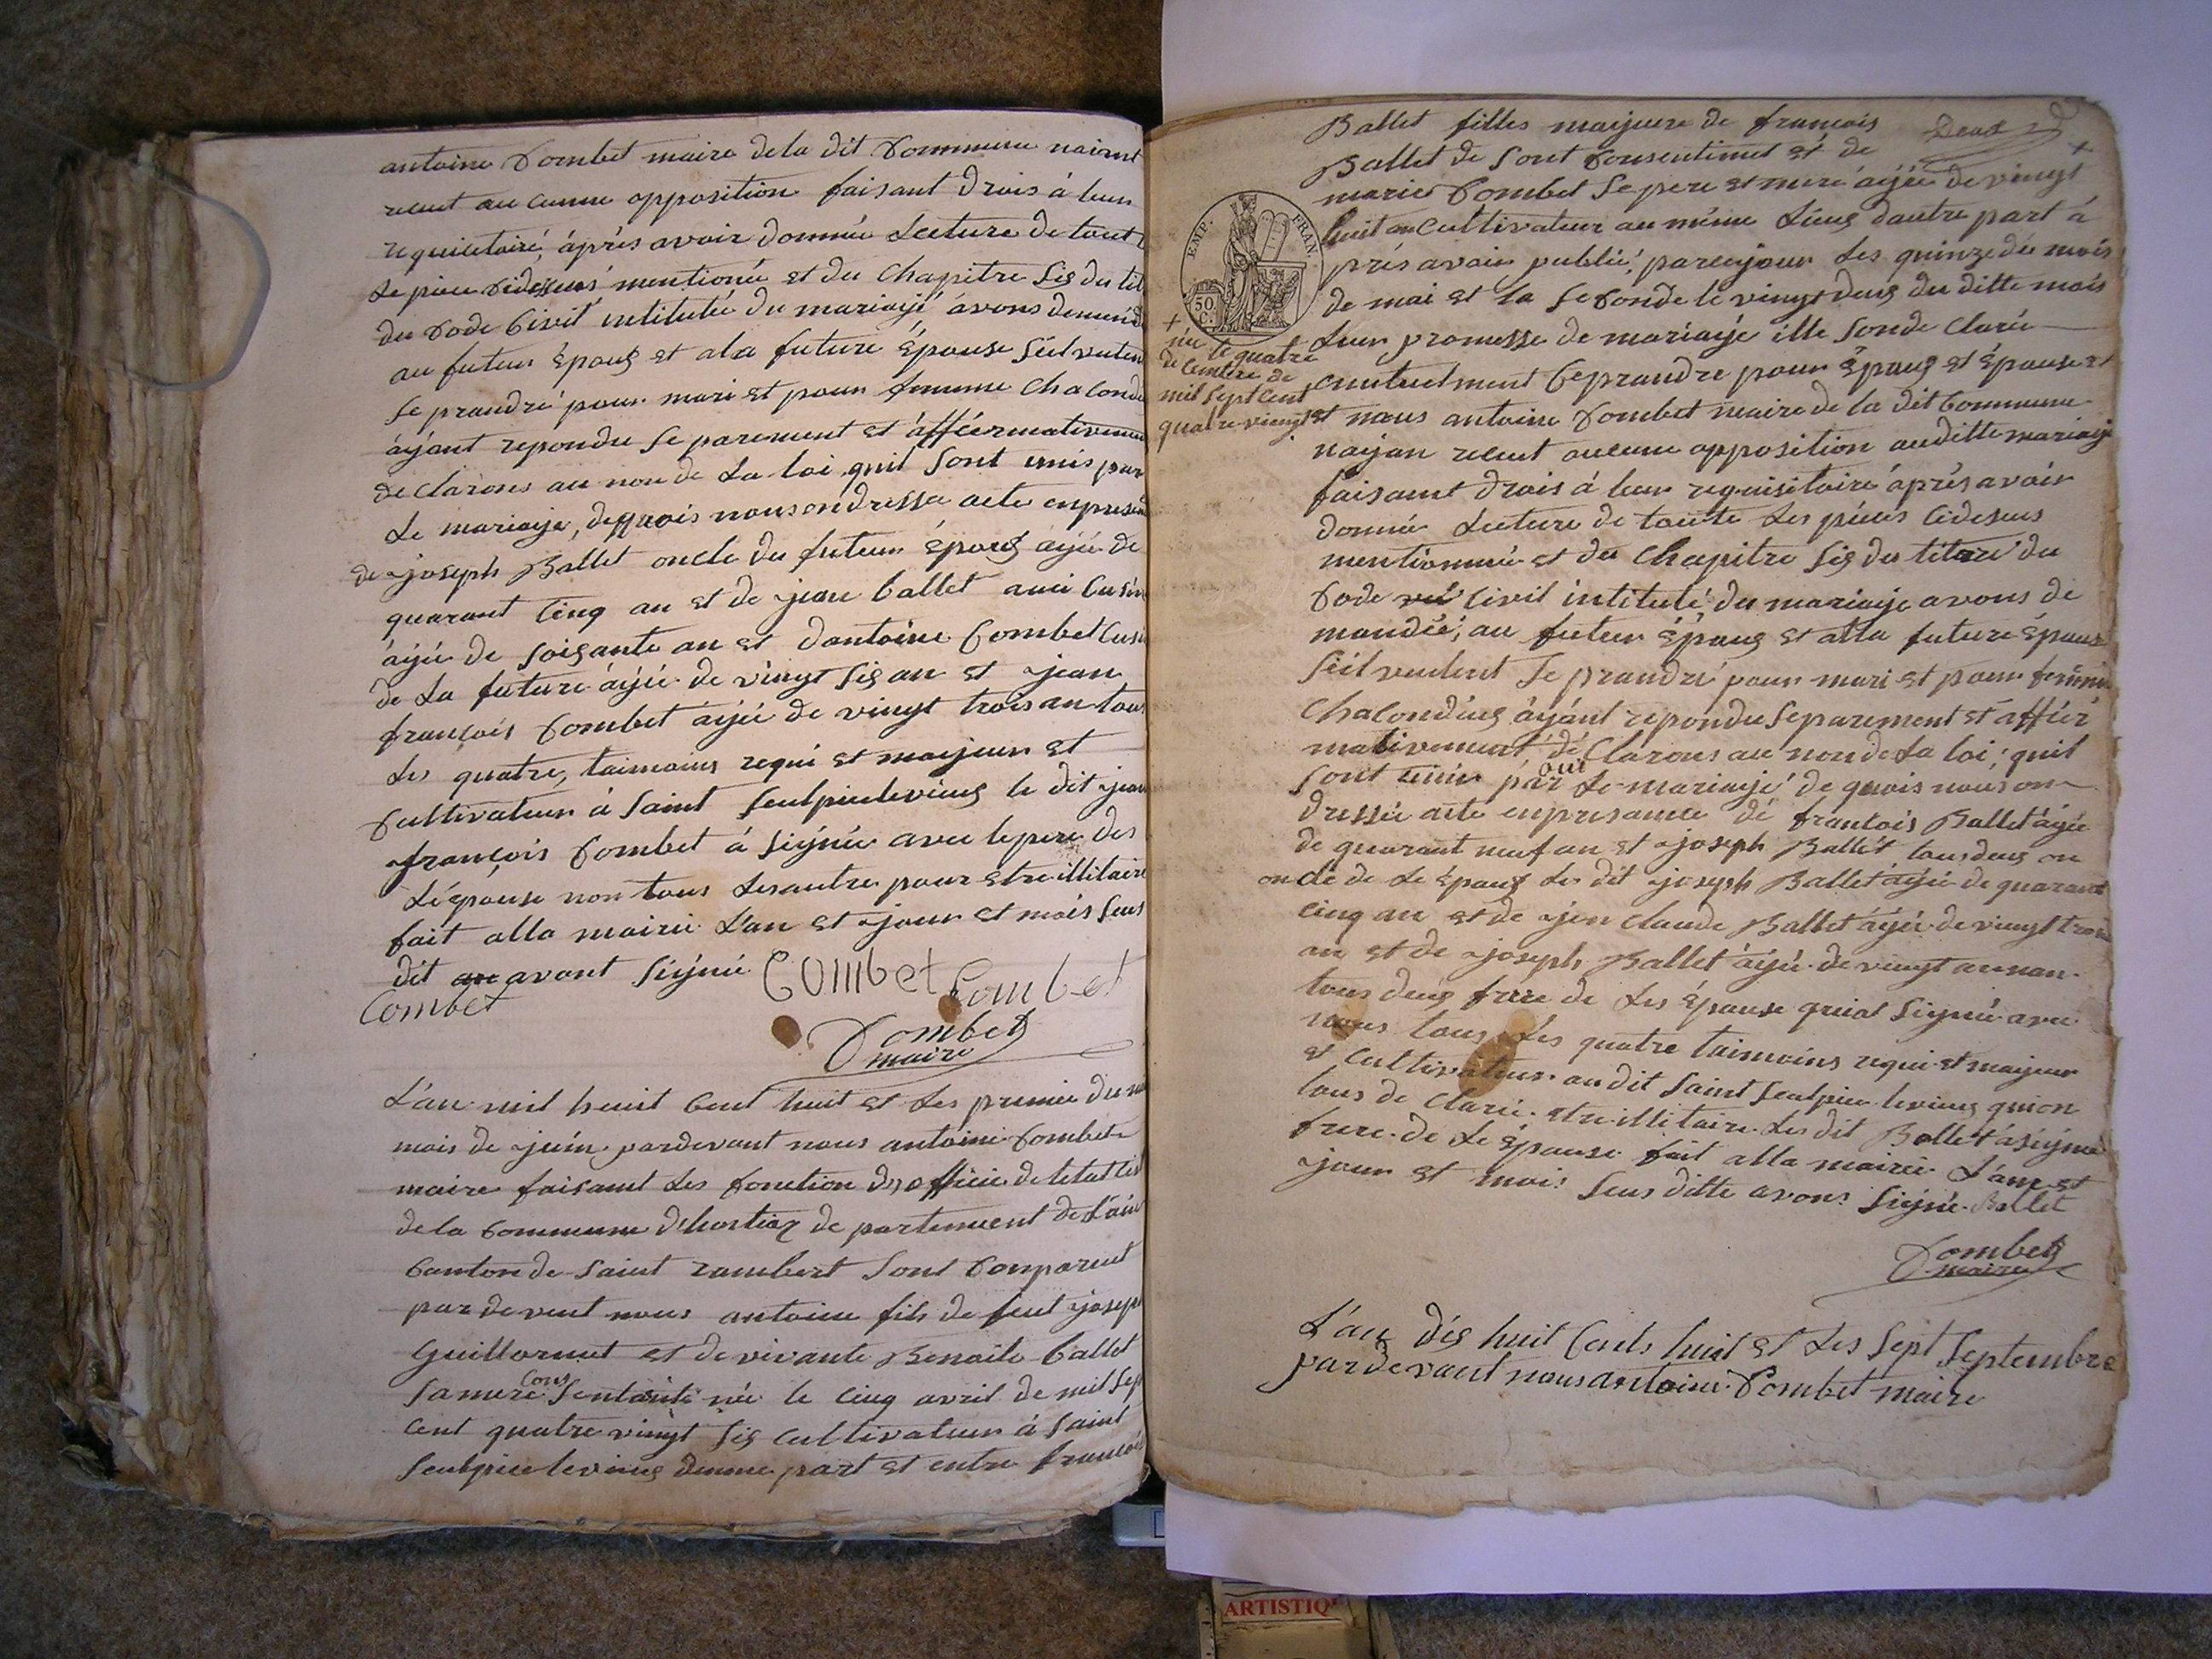 antoine Combet maire de la dit Commune naient
recut au cunne opposition faisant Drois à leur
requicitoire, áprés avoir donnée Lecture de tout
Le piece cidessus mentionée et du Chapitre Sis du tit
du Code Civil intitulée du mariage avons demend
au futeur épous et ala future épouse Siil veulen
Se prandre pour mari et pour femme Chacond
áyant repondu Separement et áffiermativemen
declarons au non de La loi quil Sont unis par
Le mariage, dequois nous on dressa acte enpresen
de joseph Ballet oncle du futeur épous agée de
quarant Cinq an et de jean ballet auci Cusin
ágée de Soisante an et dantoine Combet Cusi
de La future ágée de vingt Sis an et jean
françois Combet ágée de vingt trois an tous
Les quatre, taimoins requi et majeur et
Cultivateur á Saint Seulpice le vieus le dit jean
françois Combet á Signée avec le pere des
Lépouse non tous Les autre pour etre illitaire
fait alla mairie L'an et jour et mois Seus
dit avant Signée Combet Combet
Combet
Combet
maire
L'an mil huit Cent huit et Les premie du
mois de juin pardevant nous antoine Combet
maire faisant Les fonction dofficie de letat
de la Commune dhostiaz de partement de Láin
Canton de Saint rambert Sont Comparent
par devent nous antoine fils de feut joseph
Guillermet et de vivante Benoite ballet
Samere Consentante née le Cinq avril de mil Sep
Cent quatre vingt Sis Cultivateur á Saint
Seulpice le vieus dunne part et entre françois
Deux
Ballet filles majeure de francois
Ballet de Sont Consentimet et de
marie Combet Se pere et mere ágée de vingt
huit an Cultivateur au même Lieus dautre part á
prés avoir publié, parenjour Les quinze du mois
de mai et la Seconde le vingt deus du ditte mois
Leur promesse de mariage ille Son de Claré
mutuelment Ceprandre pour épous et épouse et
et nous antoine Combet maire de la dit Commune
naijan recut aucune opposition auditte mariage
faisant Drois á leur requisitoire áprés avoir
donnée Lecture de toute Les piéces Cidessus
mentionnée et du Chapitre Sis du titre du
Code Civil intitulé du mariage avons de
mandée, au futeur épous et alla future épouse
Siil veulent Se prandre pour mari et pour femme
Chacondeus áyant repondu Separement et áffier
mativement oui dé Clarons au non de La loi, quil
Sont unis par Le mariage de quois nous on
dressée acte enpresance de francois Ballet ágée
de quarant neuf an et joseph Ballet tous deus on
oncle de Le épous Le dit joseph Ballet agée de quarant
Cinq an et de jen Claude Ballet ágée de vingt trois
an et de joseph Ballet ágée de vingt
tous deus frere de Les épouse Signée avec
nous tous Les quatre taimoins requi et majeur
et Cultivateur au dit Saint Seulpice levieus quion
tous de Clarée etre illitaire Les dit Ballet á Signée
frere de Le épouse fait alla mairie L'an et
jour et mois Seus ditte avons Signée Ballet
Combet
maire
L'an dis huit Cents huit et Les Sept Septembre
par devant nous antoine Combet maire
EMP. FRAN.
50 C.
+ née le quatre
decembre de
mil Sept Cent
quatre-vingt
ARTISTIQ